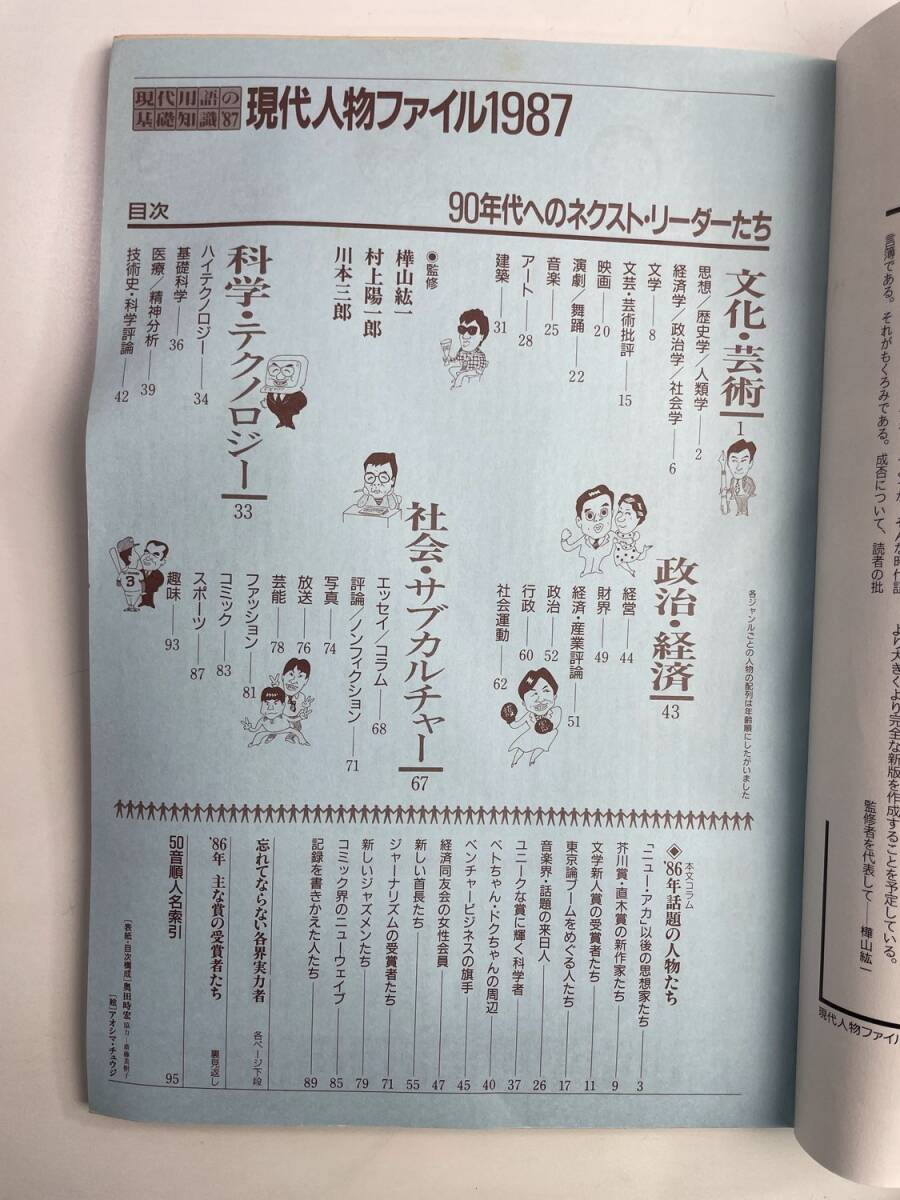 現代用語の
基礎知識'87
現代人物ファイル1987
90年代へのネクスト・リーダーたち
目次
文化・芸術 1
思想／歴史学／人類学――2
経済学／政治学／社会学――6
文学――8
文芸・芸術批評――15
映画――20
演劇／舞踊――22
音楽――25
アート――28
建築――31
●監修
樺山紘一
村上陽一郎
川本三郎
科学・テクノロジー 33
ハイテクノロジー――34
基礎科学――36
医療／精神分析――39
技術史・科学評論――42
各ジャンルごとの人物の配列は年齢順にしたがいました
政治・経済 43
経営――44
財界――49
経済・産業評論――51
政治――52
行政――60
社会運動――62
社会・サブカルチャー 67
エッセイ／コラム――68
評論／ノンフィクション――71
写真――74
放送――76
芸能――78
ファッション――81
コミック――83
スポーツ――87
趣味――93
3
本文コラム
◆'86年話題の人物たち
「ニュー・アカ」以後の思想家たち――3
芥川賞・直木賞の新作家たち――9
文学新人賞の受賞者たち――11
東京論ブームをめぐる人たち――17
音楽界・話題の来日人――26
ユニークな賞に輝く科学者――37
ベトちゃん・ドクちゃんの周辺――40
ベンチャービジネスの旗手――45
経済同友会の女性会員――47
新しい首長たち――55
ジャーナリズムの受賞者たち――71
新しいジャズメンたち――79
コミック界のニューウェイブ――85
記録を書きかえた人たち――89
忘れてならない各界実力者 各ページ下段
'86年 主な賞の受賞者たち 裏見返し
50音順人名索引 95
［表紙・目次構成］奥田時宏
［絵］アオシマ・チュウジ
言簿である。それがもくろみである。成否について、読者の批
より大きくより完全な新版を作成することを予定している。
監修者を代表して――樺山紘一
現代人物ファイル